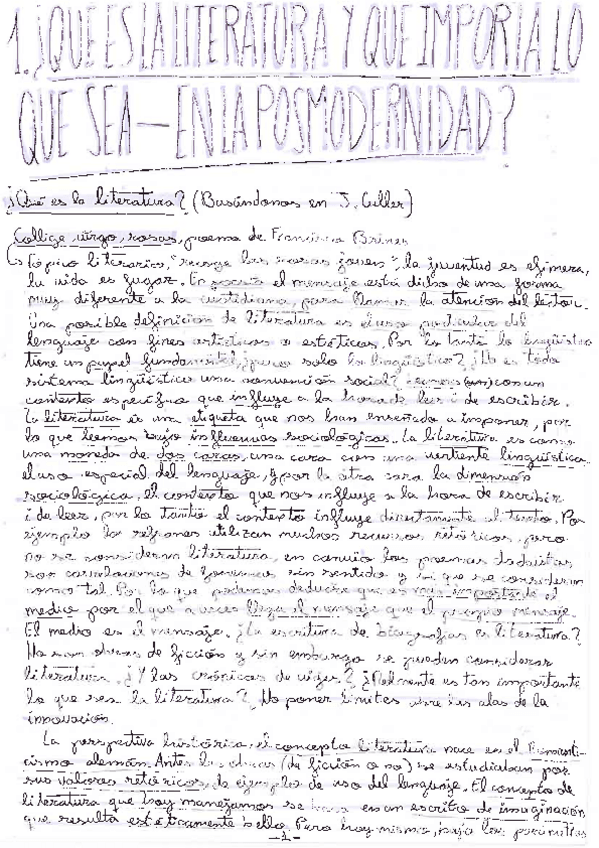 1. ¿QUÉ ES LA LITERATURA Y QUE IMPORTA LO
QUE SEA — EN LA POSMODERNIDAD?
¿Qué es la literatura? (Basándonos en J. Culler)
Collige, virgo, rosas, poema de Francisco Brines
Tópico literario, "recoge las rosas joven", la juventud es efímera,
la vida es fugaz. En poesía el mensaje está dicho de una forma
muy diferente a la cotidiana, para llamar la atención del lector.
Una posible definición de literatura es el uso particular del
lenguaje con fines artísticos o estéticos. Por lo tanto lo lingüístico
tiene un papel fundamental, ¿pero solo lo lingüístico? ¿No es todo
sistema lingüístico una convención social? con un
contexto específico que influye a la hora de leer i de escribir.
La literatura es una etiqueta que nos han enseñado a imponer, por
lo que leemos bajo influencias sociológicas. La literatura es como
una moneda de dos caras, una cara con una vertiente lingüística
el uso especial del lenguaje, y por la otra cara la dimensión
sociológica, el contexto que nos influye a la hora de escribir
i de leer, por lo tanto el contexto influye directamente al texto. Por
ejemplo los refranes utilizan muchos recursos retóricos, pero
no se consideran literatura, en cambio los poemas dadaístas
son sin sentido y sí que se consideran
como tal. Por lo que podemos deducir que es más importante el
medio por el que a veces llega el mensaje que el propio mensaje.
El medio es el mensaje. ¿La escritura de biografías es literatura?
No son obras de ficción y sin embargo se pueden considerar
literatura. ¿Y las crónicas de viajes? ¿Realmente es tan importante
lo que sea la literatura? No poner límites alas de la
innovación.
La perspectiva histórica, el concepto literatura nace en el Romanti-
cismo alemán. Antes las obras (de ficción o no) se estudiaban por
sus valores retóricos, de ejemplos de uso del lenguaje. El concepto de
literatura que hoy manejamos se basa en un escrito de imaginación
que resulta estéticamente bello. Pero hoy mismo, bajo los parámetros
-1-